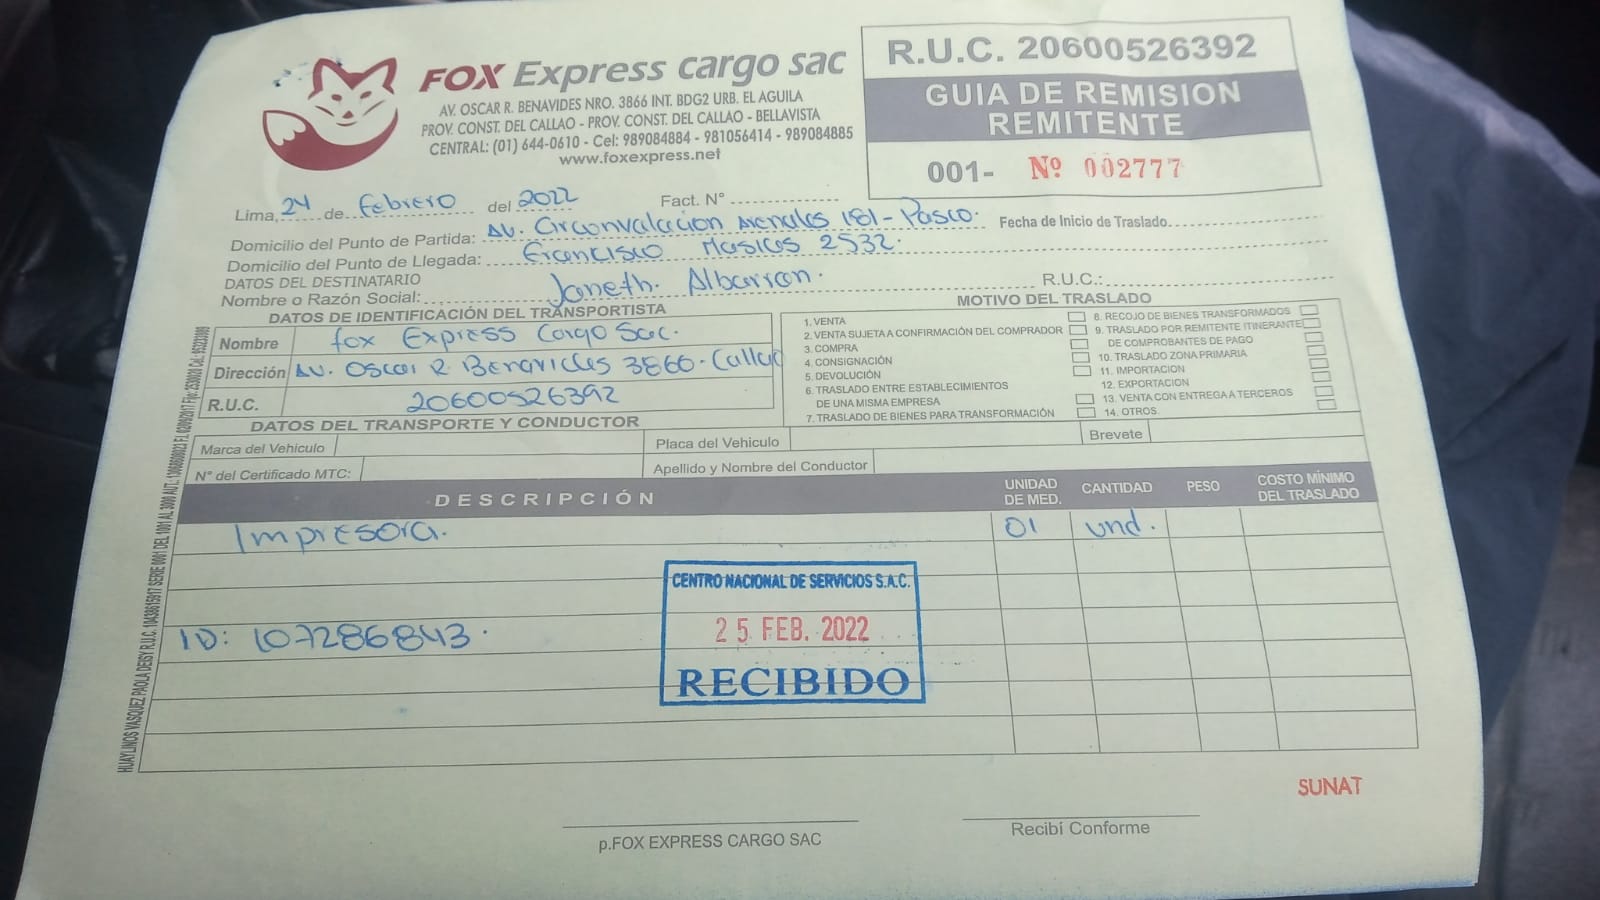 FOX Express cargo sac
AV. OSCAR R. BENAVIDES NRO. 3866 INT. BDG2 URB. EL AGUILA
PROV. CONST. DEL CALLAO - PROV. CONST. DEL CALLAO - BELLAVISTA
CENTRAL: (01) 644-0610 - Cel: 989084884 - 981056414 - 989084885
www.foxexpress.net
R.U.C. 20600526392
GUIA DE REMISION
REMITENTE
001- Nº 002777
Lima, 24 de febrero del 2022 Fact. N°
Domicilio del Punto de Partida: AV. Circonvalacion Arenales 181 - Pasco. Fecha de Inicio de Traslado.
Domicilio del Punto de Llegada: Francisco Masias 2532.
DATOS DEL DESTINATARIO
Nombre o Razón Social: Janeth. Albarran. R.U.C.:
DATOS DE IDENTIFICACIÓN DEL TRANSPORTISTA
Nombre fox Express Cargo Sac.
Dirección AV. Oscar R Benavides 3866 - Callao
R.U.C. 20600526392
MOTIVO DEL TRASLADO
1. VENTA
2. VENTA SUJETA A CONFIRMACIÓN DEL COMPRADOR
3. COMPRA
4. CONSIGNACIÓN
5. DEVOLUCIÓN
6. TRASLADO ENTRE ESTABLECIMIENTOS
DE UNA MISMA EMPRESA
7. TRASLADO DE BIENES PARA TRANSFORMACIÓN
8. RECOJO DE BIENES TRANSFORMADOS
9. TRASLADO POR REMITENTE ITINERANTE
DE COMPROBANTES DE PAGO
10. TRASLADO ZONA PRIMARIA
11. IMPORTACION
12. EXPORTACION
13. VENTA CON ENTREGA A TERCEROS
14. OTROS.
DATOS DEL TRANSPORTE Y CONDUCTOR
Marca del Vehiculo Placa del Vehiculo Brevete
N° del Certificado MTC: Apellido y Nombre del Conductor
DESCRIPCIÓN UNIDAD DE MED. CANTIDAD PESO COSTO MÍNIMO DEL TRASLADO
Impresora. 01 und.
CENTRO NACIONAL DE SERVICIOS S.A.C.
25 FEB. 2022
RECIBIDO
ID: 107286843.
SUNAT
p.FOX EXPRESS CARGO SAC
Recibí Conforme